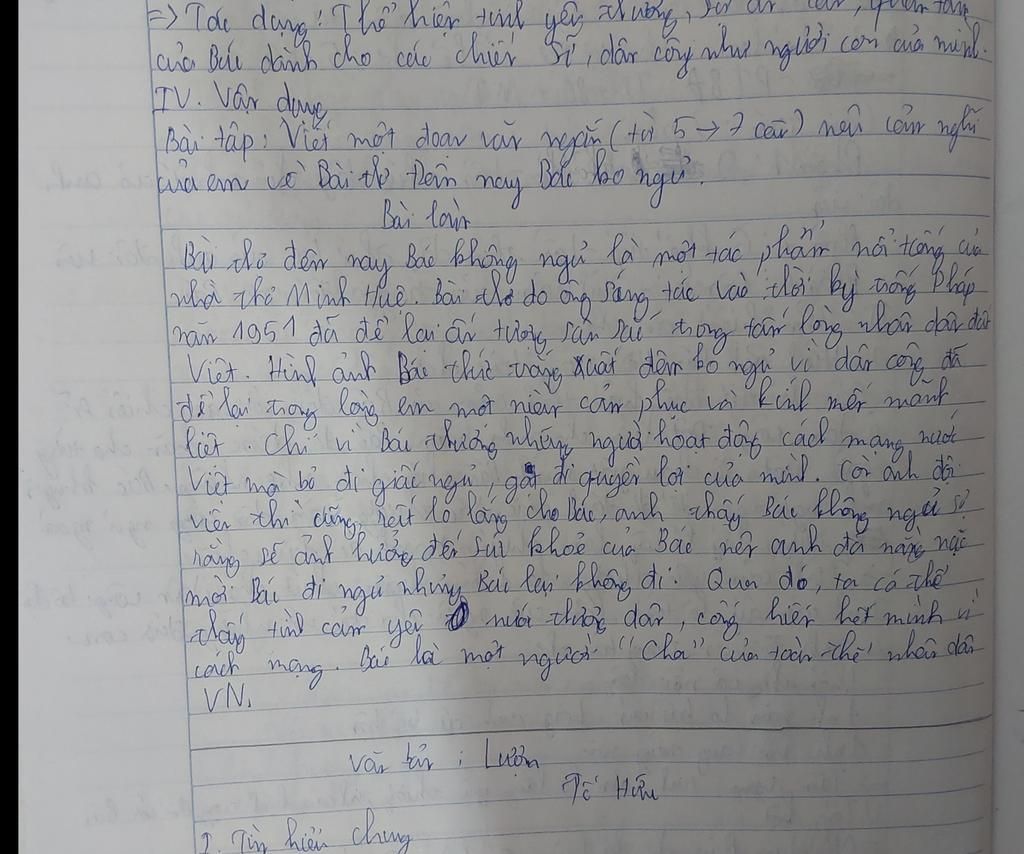 => Tác dụng: Thể hiện tình yêu thương, sự ân cần, quan tâm
của Bác dành cho các chiến sĩ, dân công như người con của mình.
IV. Vận dụng
Bài tập: Viết một đoạn văn ngắn (từ 5 → 7 câu) nêu cảm nghĩ
của em về Bài thơ Đêm nay Bác ko ngủ.
Bài làm
Bài thơ đêm nay Bác không ngủ là một tác phẩm nổi tiếng của
nhà thơ Minh Huệ. Bài thơ do ông sáng tác vào thời kỳ chống Pháp
năm 1951 đã để lại ấn tượng sâu sắc trong tấm lòng nhân dân đất
Việt. Hình ảnh Bác thức trắng xuất đêm ko ngủ vì dân công đã
để lại trong lòng em một niềm cảm phục và kính mến mãnh
liệt chỉ vì Bác thương những người hoạt động cách mạng nước
Việt mà bỏ đi giấc ngủ, gạt đi quyền lợi của mình. Còn anh đội
viên thì cũng rất lo lắng cho Bác, anh thấy Bác không ngủ sợ
rằng sẽ ảnh hưởng đến sức khoẻ của Bác nên anh đã nằng nặc
mời Bác đi ngủ nhưng Bác lại không đi. Qua đó, ta có thể
thấy tình cảm yêu nước thương dân, cống hiến hết mình vì
cách mạng. Bác là một người "Cha" của toàn thể nhân dân
VN.
Văn bản : Lượm
Tố Hữu
I. Tìm hiểu chung